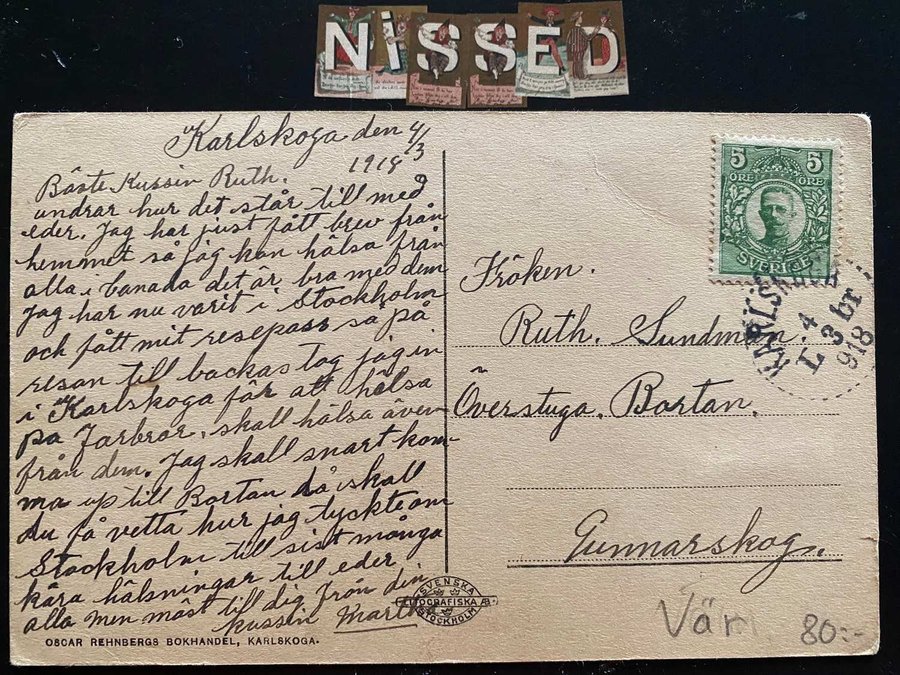 NISSED
Karlskoga den 4/3
1918
Bäste Kussin Ruth.
undrar hur det står till med
eder. Jag har just fått brev från
hemmet så jag kan hälsa från
alla i Canada det är bra med dem
Jag har nu varit i Stockholm
och fått mit resepass så på
resan till backas tog jag in
i Karlskoga får att hälsa
på Farbror, skall hälsa även
från dem. Jag skall snart kom-
ma up till Bortan då skall
du få vetta hur jag tyckte om
Stockholm till sist många
kära hälsningar till eder
alla men mäst till dig från din
kussin Marth
OSCAR REHNBERGS BOKHANDEL, KARLSKOGA.
SVENSKA
LITOGRAFISKA AB
STOCKHOLM
5 5
ÖRE ÖRE
SVERIGE
4
3 br
918
Fröken.
Ruth. Sundman.
Överstuga. Bortan.
Gunnarskog.
Värm
80:-